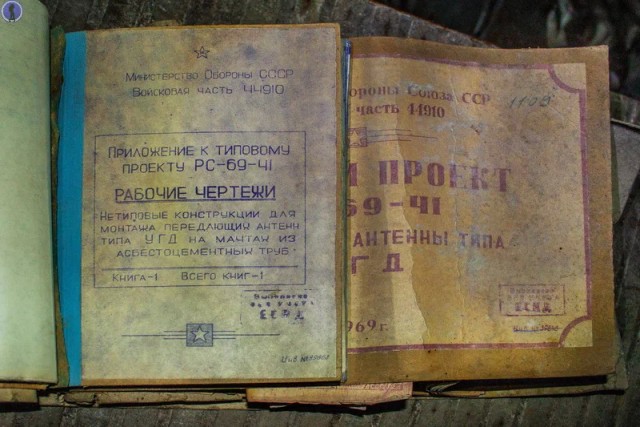 Министерство Обороны СССР
Войсковая часть 44910
Приложение к типовому
проекту РС-69-41
Рабочие чертежи
Нетиповые конструкции для
монтажа передающих антенн
типа УГД на мачтах из
асбестоцементных труб
Книга-1 Всего книг-1
ороны Союза ССР
часть 44910
1108
И ПРОЕКТ
69-41
АНТЕННЫ ТИПА
ГД
1969г.
ЕСКД